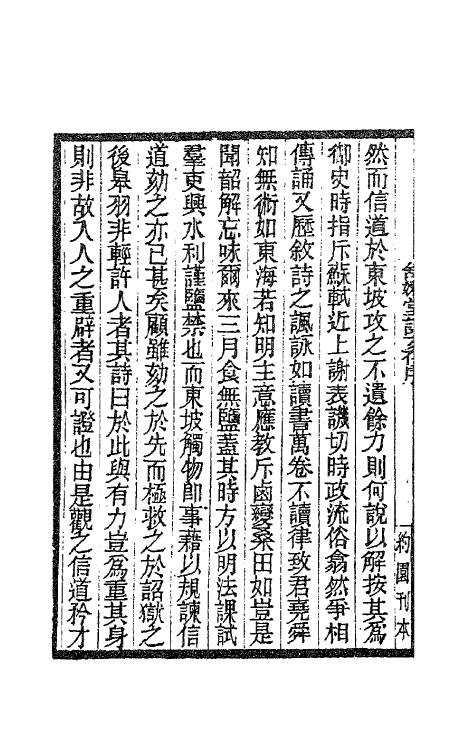 舒嬾堂詩文存序
約園刊本
然而信道於東坡攻之不遺餘力則何說以解按其爲
御史時指斥蘇軾近上謝表譏切時政流俗翕然爭相
傳誦又歷敘詩之諷詠如讀書萬卷不讀律致君堯舜
知無術如東海若知明主意應教斥鹵變桑田如豈是
聞韶解忘味爾來三月食無鹽蓋其時方以明法課試
羣吏興水利謹鹽禁也而東坡觸物卽事藉以規諫信
道劾之亦已甚矣顧雖劾之於先而極救之於詔獄之
後臯羽非輕許人者其詩曰於此與有力豈爲重其身
則非故入人之重辟者又可證也由是觀之信道矜才